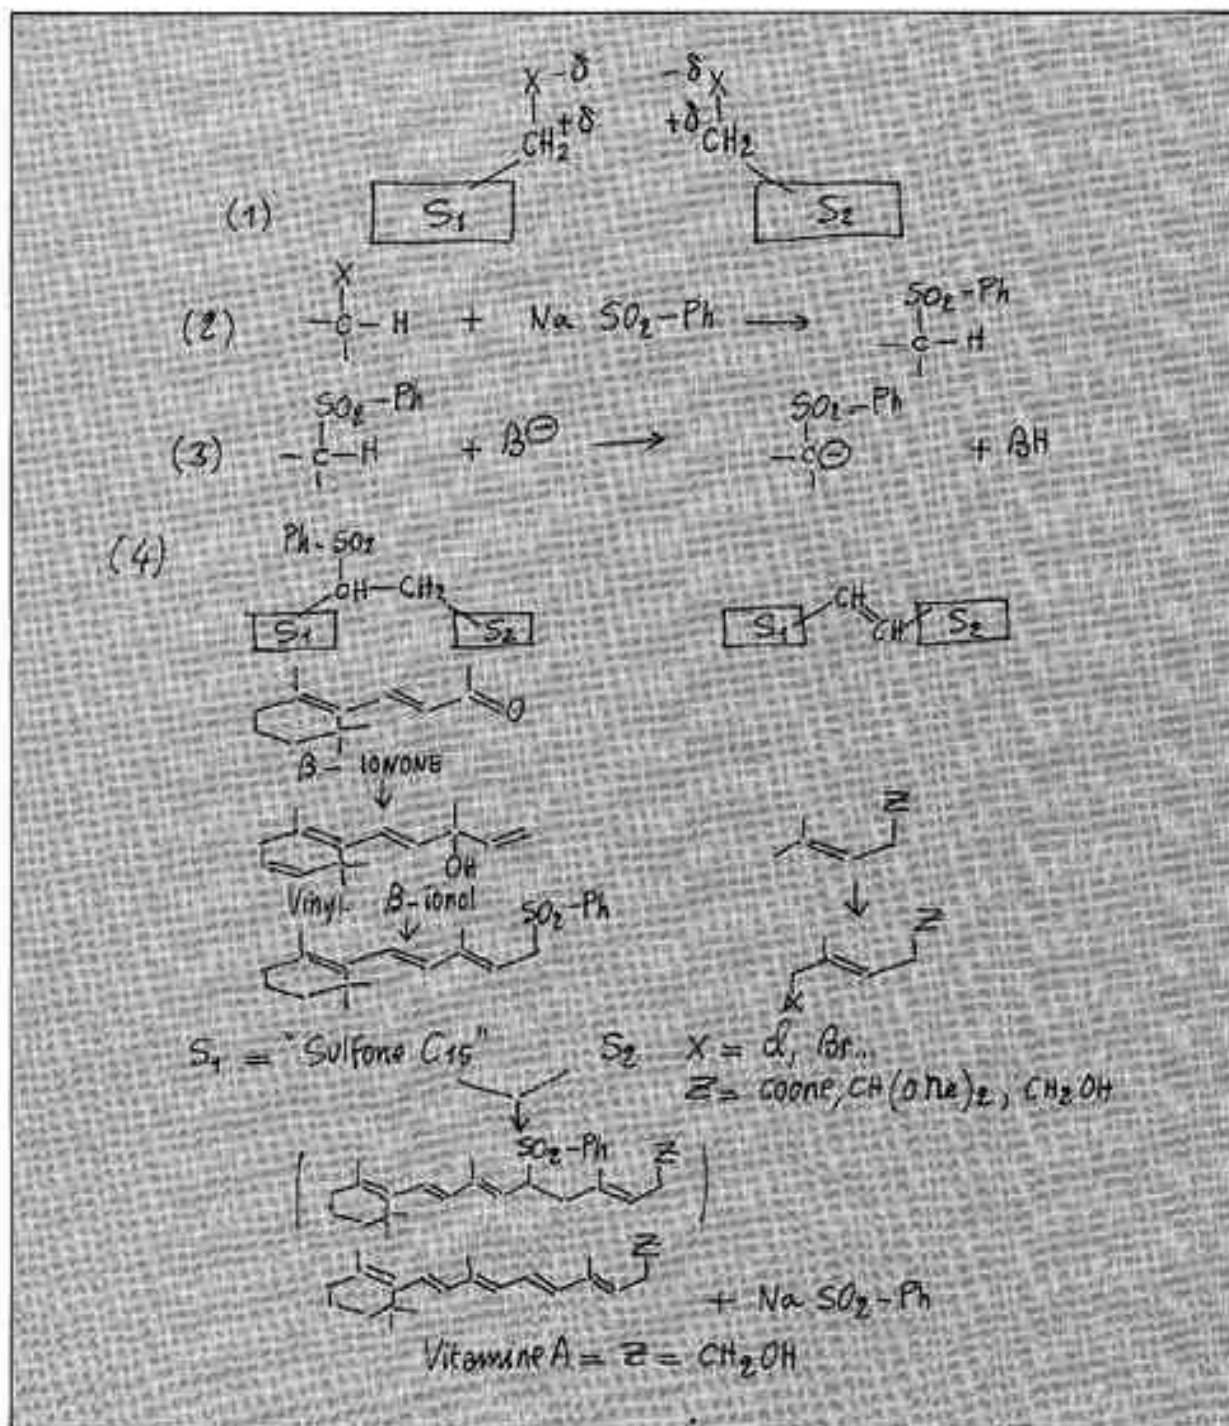 X -δ -δ X
CH2 +δ +δ CH2
(1) S1 S2
X SO2-Ph
(2) -C-H + Na SO2-Ph → -C-H
SO2-Ph SO2-Ph
(3) -C-H + B⊖ → -C⊖ + BH
(4) Ph-SO2
CH-CH2 CH
S1 S2 S1 CH S2
O
β- IONONE
Z
OH
Vinyl- β-ionol
SO2-Ph
Z
X
S1 = "Sulfone C15" S2 X = Cl, Br...
Z = COOMe, CH(OMe)2, CH2OH
SO2-Ph Z
Z
+ Na SO2-Ph
Vitamine A = Z = CH2OH